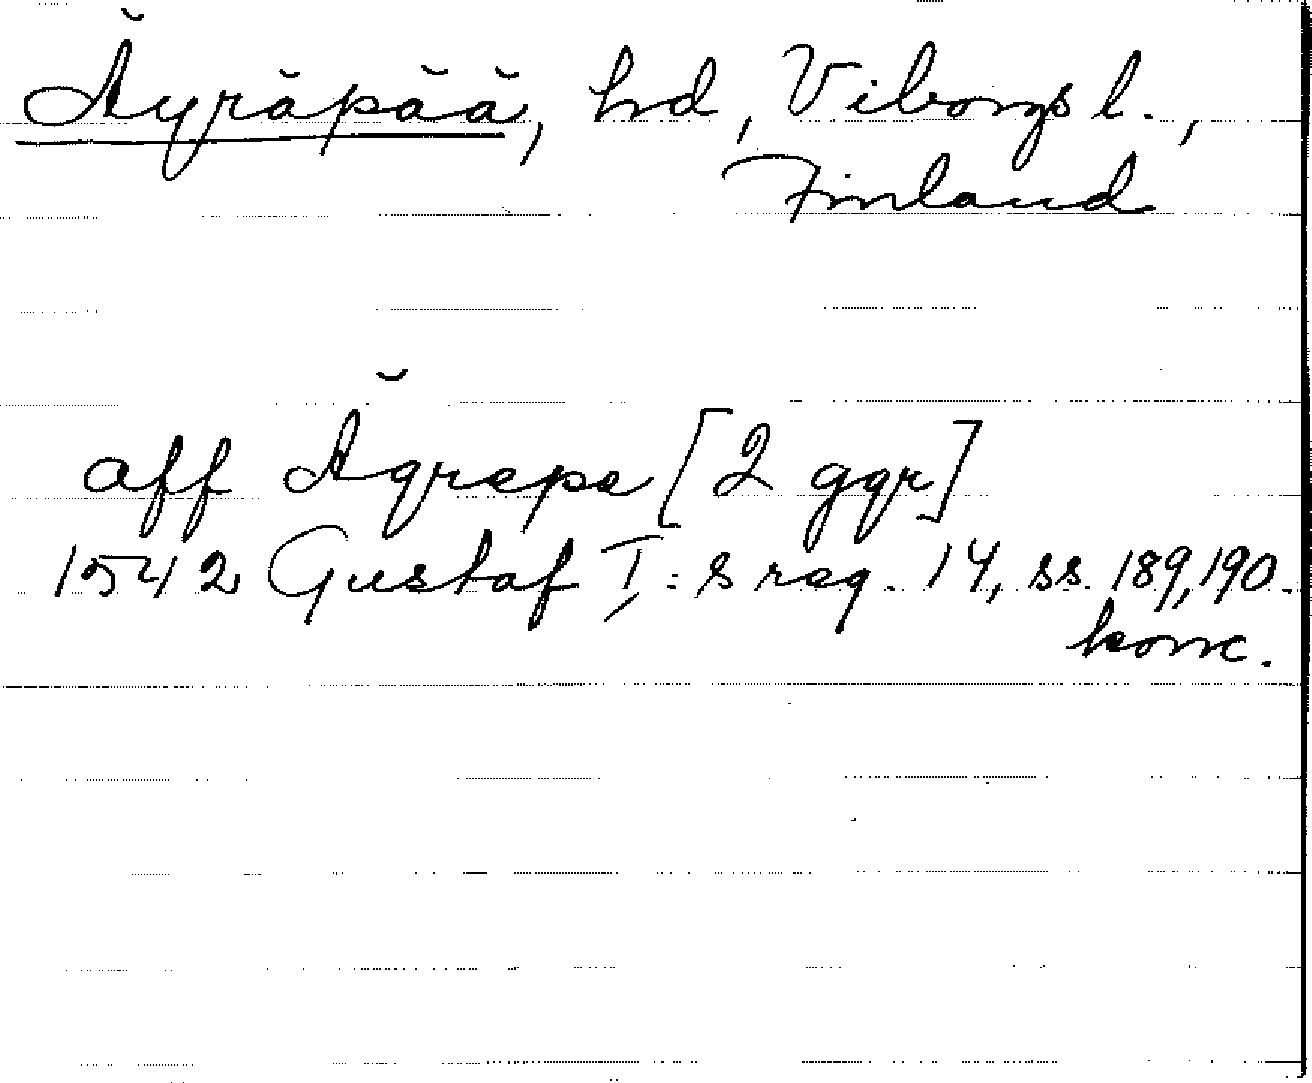 Äyräpää, hd, Viborgs l.,
Finland
aff Ägrepe [2 ggr]
1542 Gustaf I:s reg. 14, ss. 189, 190.
konc.